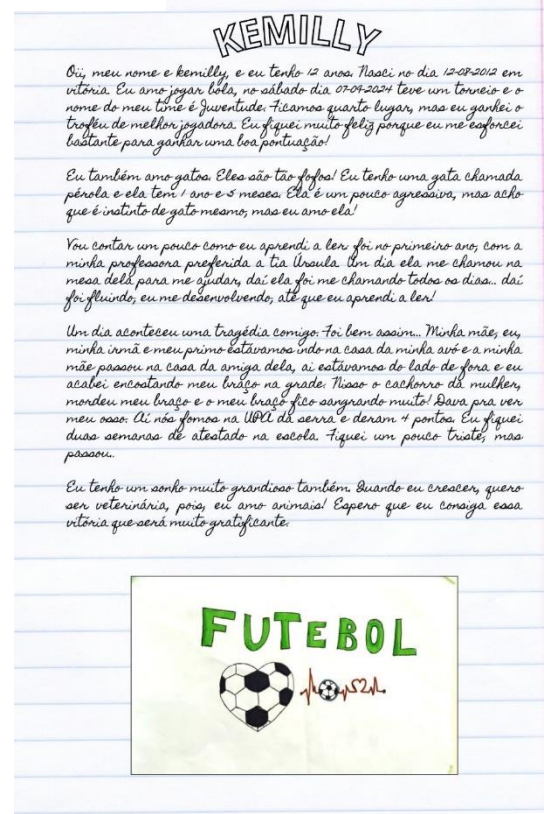 KEMILLY
Oii, meu nome e kemilly, e eu tenho 12 anos. Nasci no dia 12-08-2012 em
vitória. Eu amo jogar bola, no sábado dia 07-09-2024 teve um torneio e o
nome do meu time é Juventude. Ficamos quarto lugar, mas eu ganhei o
troféu de melhor jogadora. Eu fiquei muito feliz porque eu me esforcei
bastante para ganhar uma boa pontuação!
Eu também amo gatos. Eles são tão fofos! Eu tenho uma gata chamada
pérola e ela tem 1 ano e 5 meses. Ela é um pouco agressiva, mas acho
que é instinto de gato mesmo, mas eu amo ela!
Vou contar um pouco como eu aprendi a ler: foi no primeiro ano, com a
minha professora preferida a tia Úrsula. Um dia ela me chamou na
mesa dela para me ajudar, daí ela foi me chamando todos os dias... daí
foi fluindo, eu me desenvolvendo, até que eu aprendi a ler!
Um dia aconteceu uma tragédia comigo. Foi bem assim... Minha mãe, eu,
minha irmã e meu primo estávamos indo na casa da minha avó e a minha
mãe passou na casa da amiga dela, ai estávamos do lado de fora e eu
acabei encostando meu braço na grade. Nisso o cachorro da mulher,
mordeu meu braço e o meu braço fico sangrando muito! Dava pra ver
meu osso. Aí nós fomos na UPA da serra e deram 4 pontos. Eu fiquei
duas semanas de atestado na escola. Fiquei um pouco triste, mas
passou...
Eu tenho um sonho muito grandioso também. Quando eu crescer, quero
ser veterinária, pois, eu amo animais! Espero que eu consiga essa
vitória que será muito gratificante.
FUTEBOL